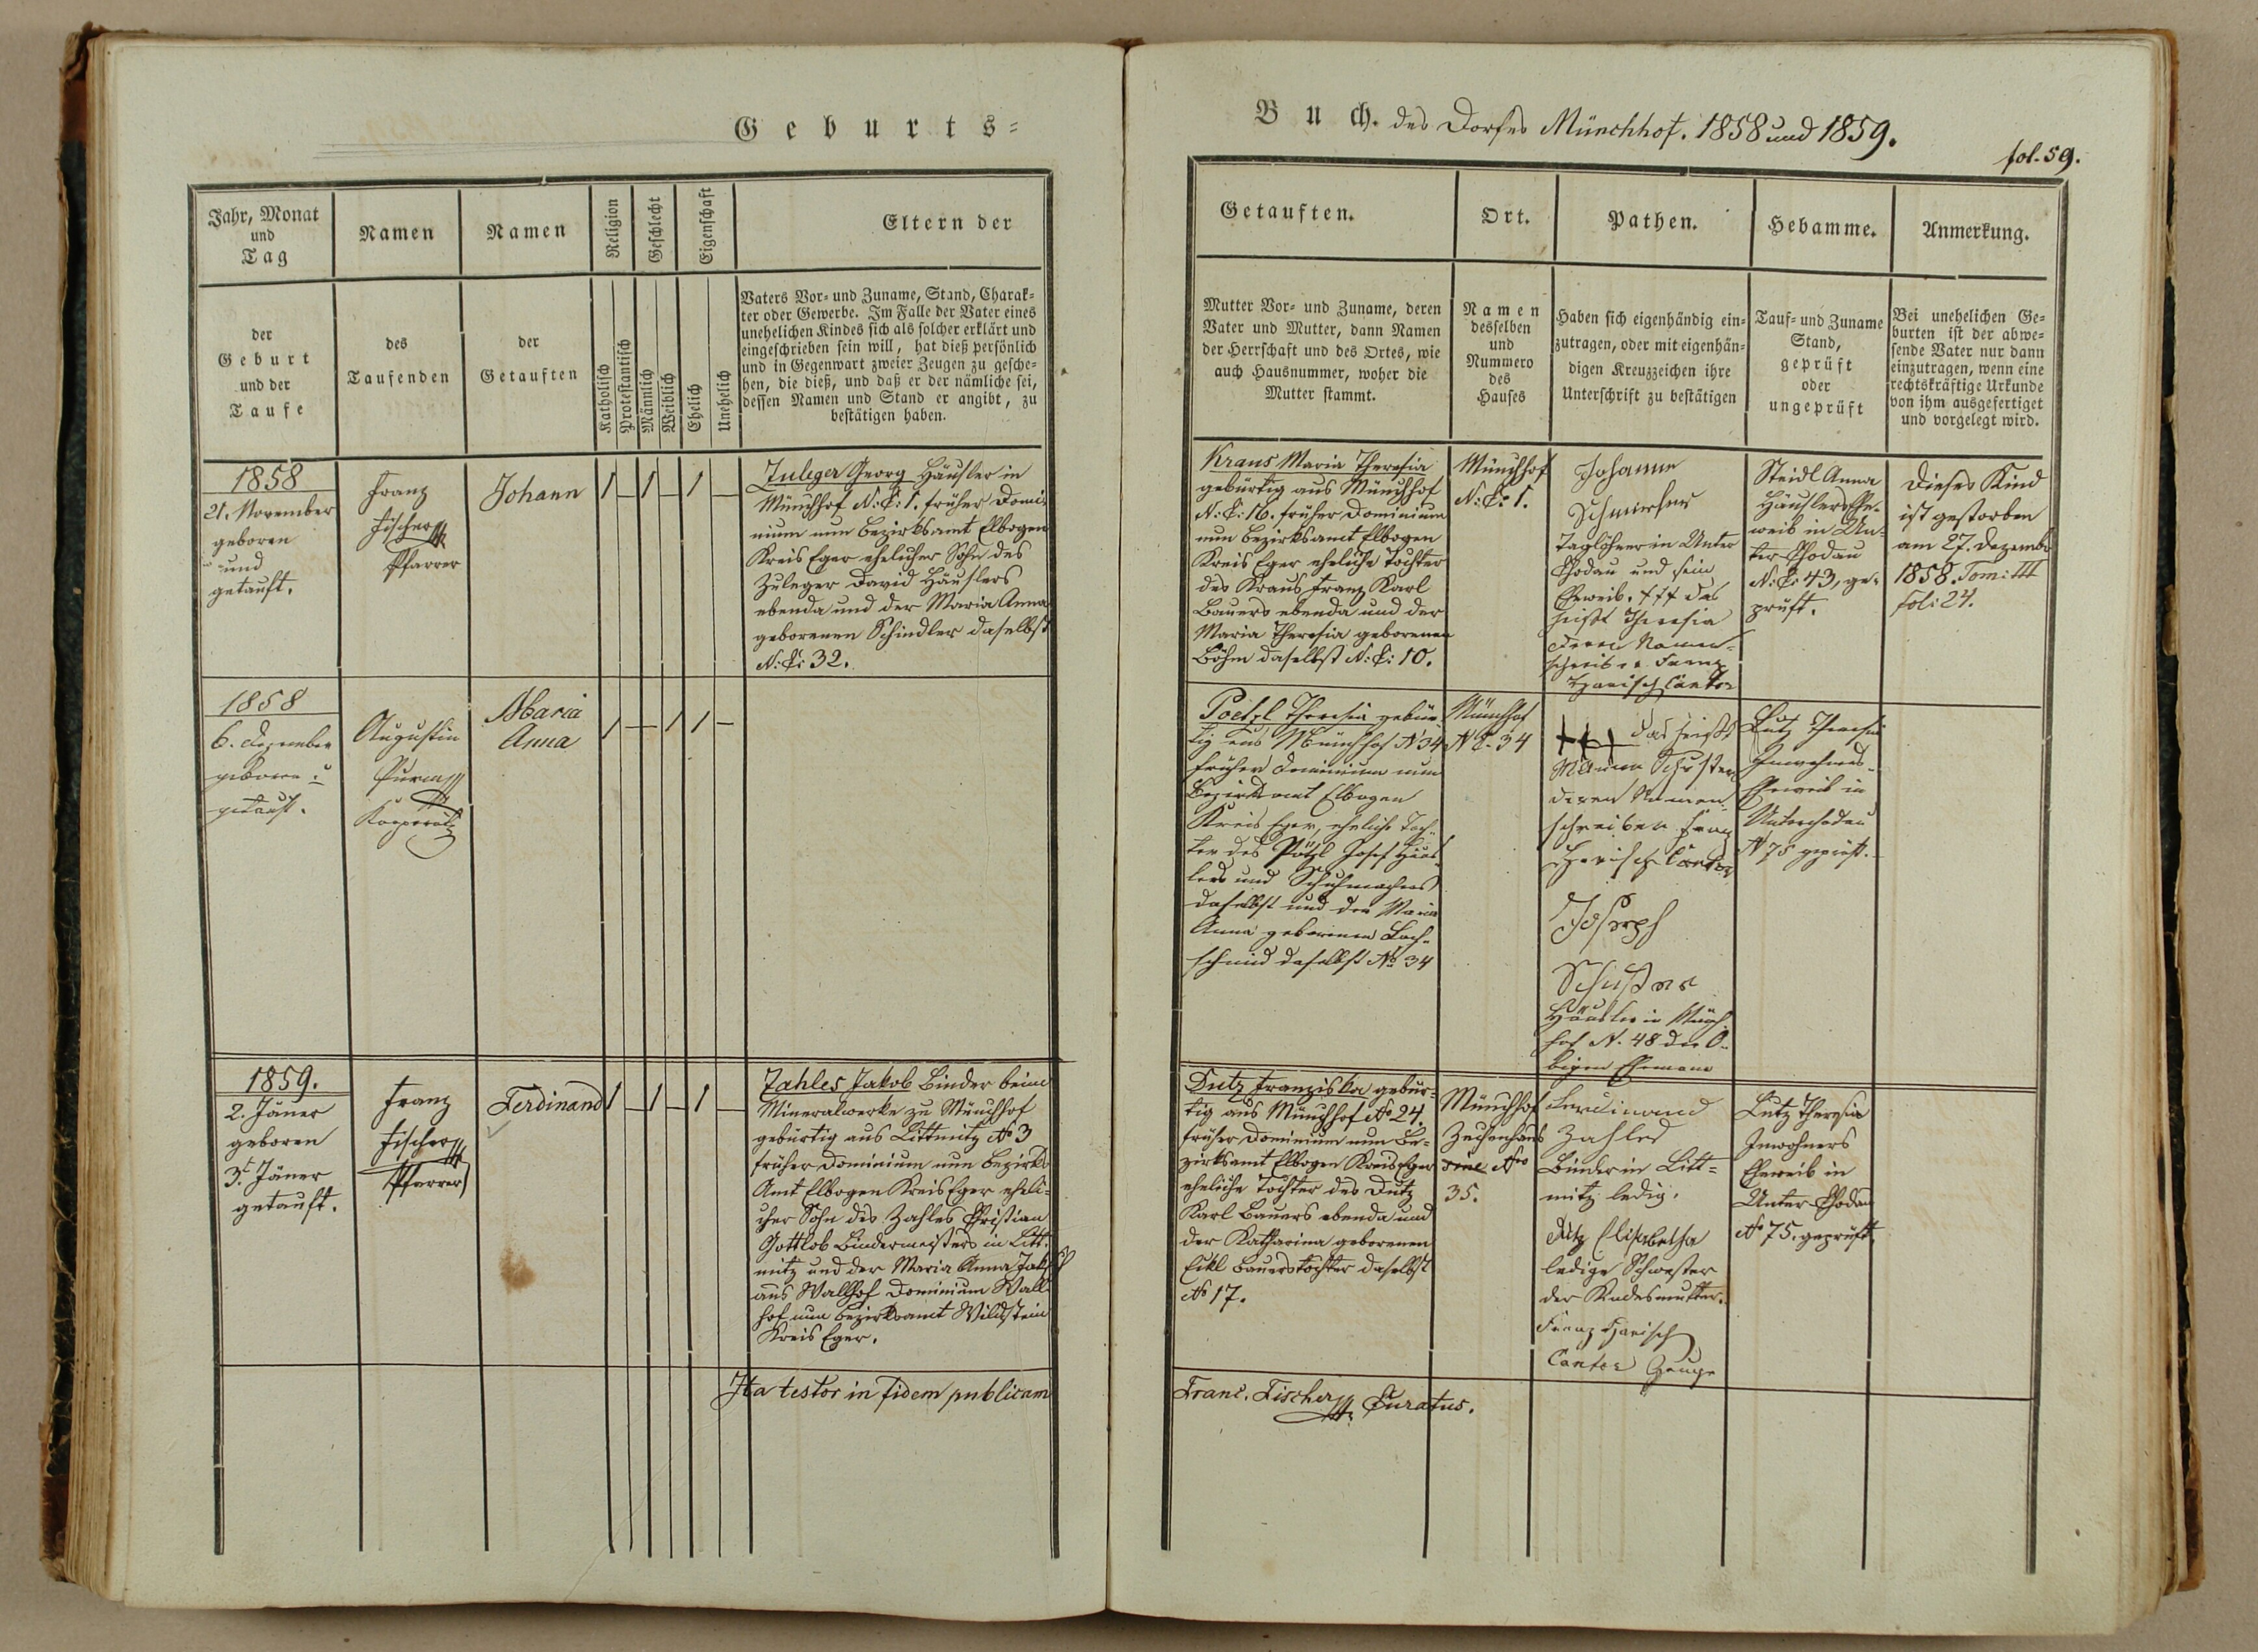 Geburts-
Jahr, Monat
und
Tag
der
Geburt
und der
Taufe
Namen
des
Taufenden
Namen
der
Getauften
Religion
Katholisch
Protestantisch
Geschlecht
Männlich
Weiblich
Eigenschaft
Ehelich
Unehelich
Eltern der
Vaters Vor- und Zuname, Stand, Charak-
ter oder Gewerbe. Im Falle der Vater eines
unehelichen Kindes sich als solcher erklärt und
eingeschrieben sein will, hat dieß persönlich
und in Gegenwart zweier Zeugen zu gesche-
hen, die dieß, und daß er der nämliche sei,
dessen Namen und Stand er angibt, zu
bestätigen haben.
1858
21. November
geboren
und
getauft.
Franz
Fischer
Pfarrer
Johann
1 – 1 – 1 –
Zuleger Georg Häusler in
Münchhof N: C: 1. früher Domi-
nium nun Bezirksamt Elbogen
Kreis Eger ehelicher Sohn des
Zuleger David Häuslers
ebenda und der Maria Anna
geborenen Schindler daselbst
N: C: 32.
1858
6. Dezember
geboren u
getauft.
Augustin
Maria
Anna
1 – 1 1 –
1859.
2. Jäner
geboren
3t. Jäner
getauft.
Franz
Fischer
Pfarrer
Ferdinand
1 – 1 – 1 –
Zahles Jakob Binder beim
Mineralwerke zu Münchhof
gebürtig aus Littmitz No 3
früher Dominium nun Bezirks
Amt Elbogen Kreis Eger eheli-
cher Sohn des Zahles Christian
Gottlob Bindermeisters in Litt-
mitz und der Maria Anna
aus Wallhof Dominium Wall-
hof nun Bezirksamt Wildstein
Kreis Eger.
Ita testor in fidem publicam
Buch. des Dorfes Münchhof. 1858 und 1859.
fol. 59.
Getauften.
Mutter Vor- und Zuname, deren
Vater und Mutter, dann Namen
der Herrschaft und des Ortes, wie
auch Hausnummer, woher die
Mutter stammt.
Ort.
Namen
desselben
und
Nummero
des
Hauses
Pathen.
Haben sich eigenhändig ein-
zutragen, oder mit eigenhän-
digen Kreuzzeichen ihre
Unterschrift zu bestätigen
Hebamme.
Tauf- und Zuname
Stand,
geprüft
oder
ungeprüft
Anmerkung.
Bei unehelichen Ge-
burten ist der abwe-
sende Vater nur dann
einzutragen, wenn eine
rechtskräftige Urkunde
von ihm ausgefertiget
und vorgelegt wird.
Kraus Maria Theresia
gebürtig aus Münchhof
N: C: 16. früher Dominium
nun Bezirksamt Elbogen
Kreis Eger eheliche Tochter
des Kraus Franz Karl
Bauers ebenda und der
Maria Theresia geborenen
Böhm daselbst N: C: 10.
Münchhof
N: C: 1.
Johann
Taglöhner in Unter
Chodau und sein
Eheweib. +++ das
heißt Theresia
deren Namen-
schreiber Franz
Hanisch Cantor
Steidl Anna
Häuslers Ehe-
weib in Un-
ter Chodau
N: C: 43, ge-
prüft.
Dieses Kind
ist gestorben
am 27. Dezember
1858 Tom: III
fol: 24.
Poetzl Theresia gebür-
tig aus Münchhof N 34
früher Dominium nun
Bezirksamt Elbogen
Kreis Eger, eheliche Toch-
ter des Pötzl Josef Häus-
lers und Schuhmachers
daselbst und der Maria
Anna geborenen Loch-
schmid daselbst No 34
Münchhof
N C. 34
+++ das heißt
Schuster
deren Namen
schreiber Franz
Hanisch Cantor
Joseph
Schuster
Häusler in Münch-
hof N. 48 der O-
bigen Ehemann
Lutz Theresia
Inwohners-
Eheweib in
Unterchodau
N 75 geprüft.
Dutz Franziska gebür-
tig aus Münchhof No 24.
früher Dominium nun Be-
zirksamt Elbogen Kreis Eger
eheliche Tochter des Dutz
Karl Bauers ebenda und
der Katharina geborenen
Eckl Bauerstochter daselbst
No 17.
Münchhof
Zechenhaus
sine Nro
35.
Ferdinand
Zahles
Binder in Litt-
mitz ledig.
Dutz Elisabetha
ledige Schwester
der Kindesmutter.
Franz Hanisch
Cantor Zeuge
Lutz Theresia
Inwohners
Eheweib in
Unter Chodau
No 75. geprüft.
Franc. Fischer Curatus.